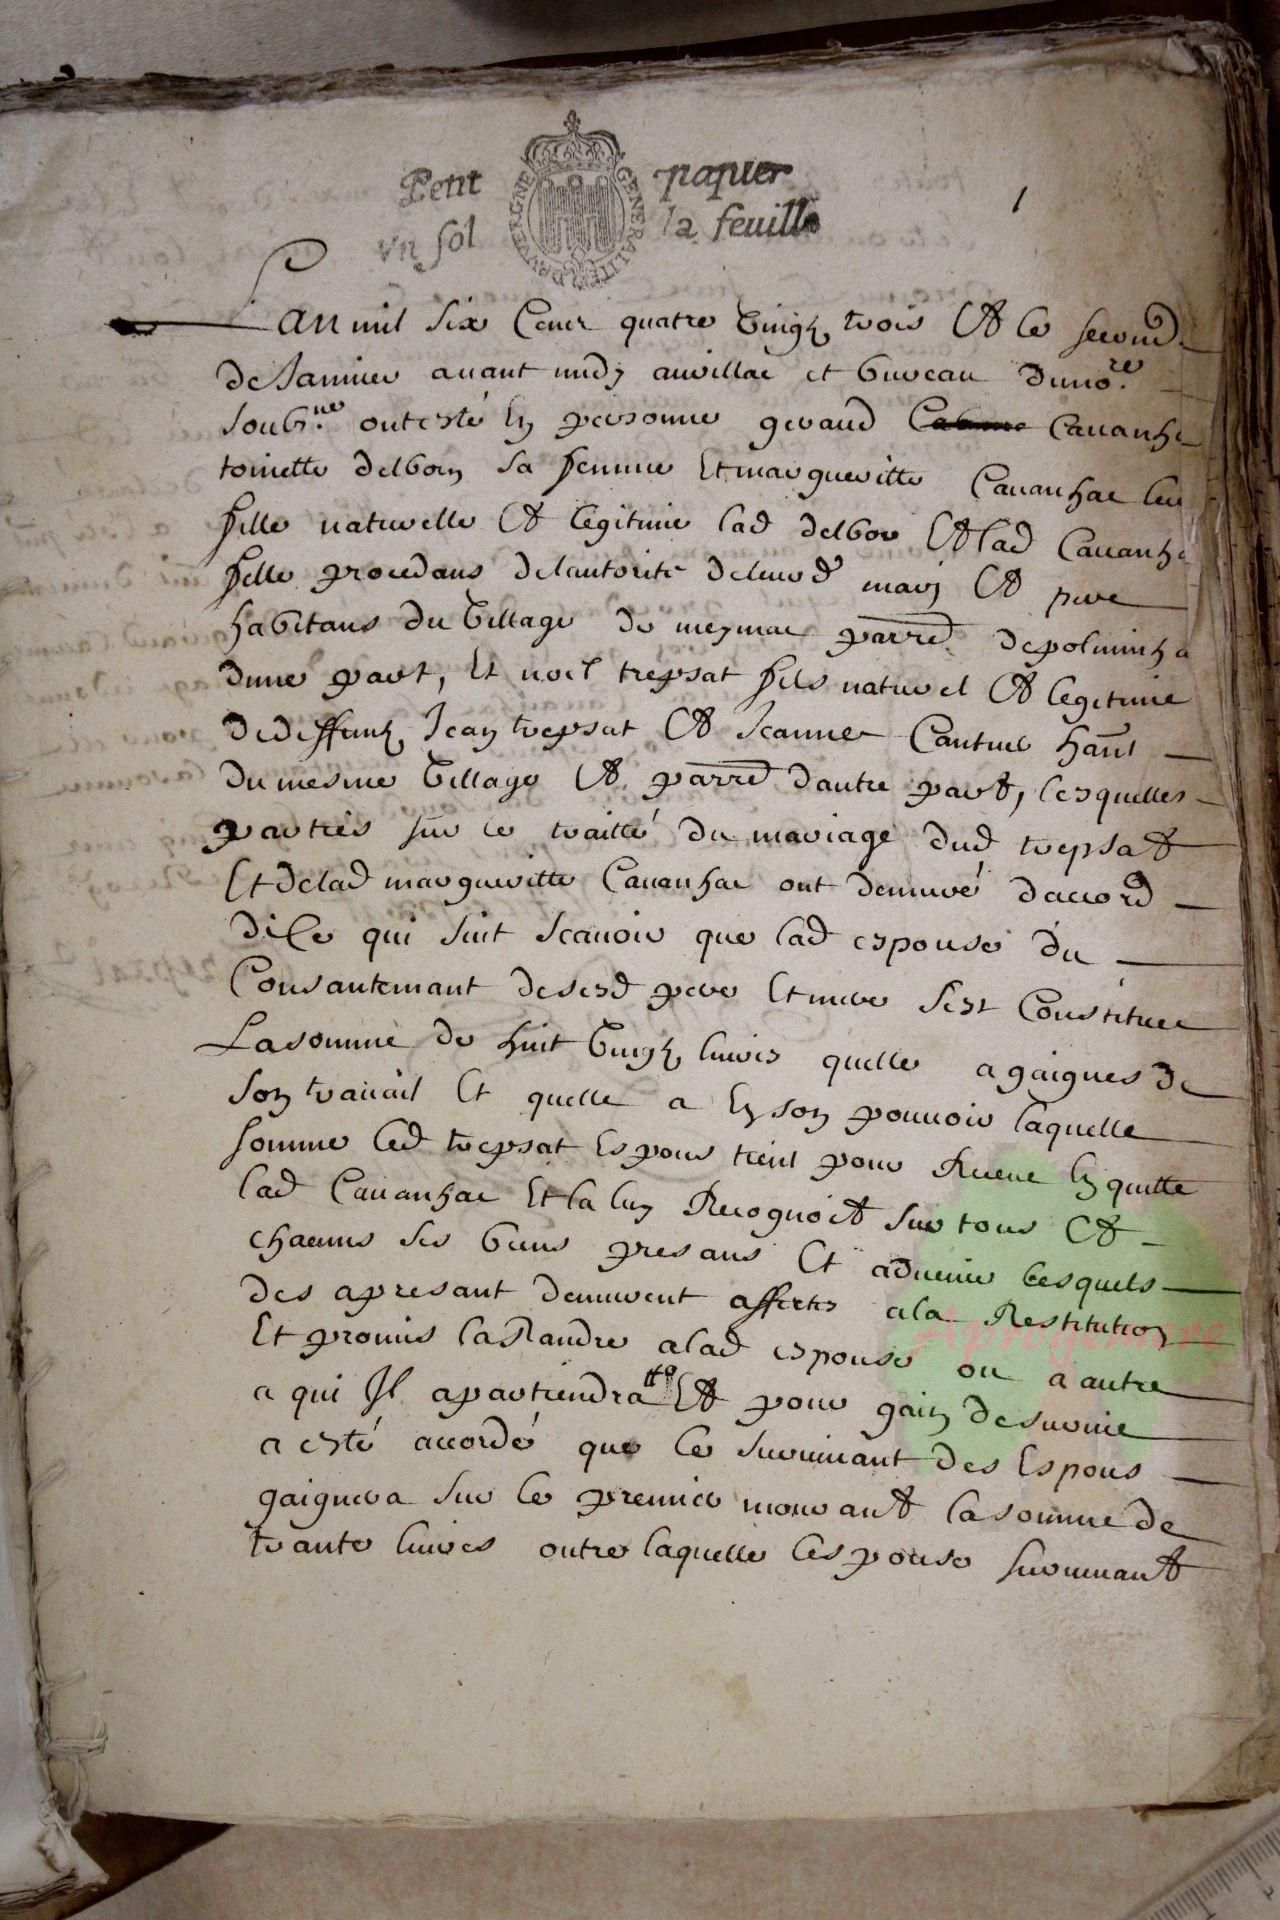 Petit papier
vn sol la feuille
GENERALITE DAUVERGNE
1
Lan mil six Cens quatre vingtz trois Et le second
de Janvier auant midy auvillac et bureau du no.re
soubz.ne ont esté En personne geraud Cauanha
toinette delbos sa femme Et margueritte Cauanhac leu
fille naturelle Et legitime lad delbos Et lad Cauanha
fille procedans delautorité deleurd mary Et pere
habitans du village de meymac parred depolminha
dune part, Et noel trepsat fils naturel Et legitime
de deffuntz Jean trepsat Et Jeanne Cantuel habt
du mesme village Et parred dautre part, lesquelles
parties sur le traitté du mariage dud trepsat
Et delad margueritte Cauanhac ont demuré daccord
dece qui suit scauoir que lad espouse du
Consantemant desesd pere Et mere sest Constituee
La somme de huit vingtz liures quelle a gaignes de
son trauail Et quelle a En son pouuoir laquelle
somme led trepsat Espous tient pour Receue En quitte
lad Cauanhac Et la luy Recognoit sur tous Et
chacuns ses biens presans Et aduenir lesquels
des apresant demurent affectes ala Restitution
Et promis la Randre alad espouse ou a autre
a qui Il apartiendra tte Et pour gain desuruie
a esté accordé que le suruiuant des Espous
gaignera sur le premier mourant la somme de
trante liures outre laquelle lespouse suruiuant
Aprogemere